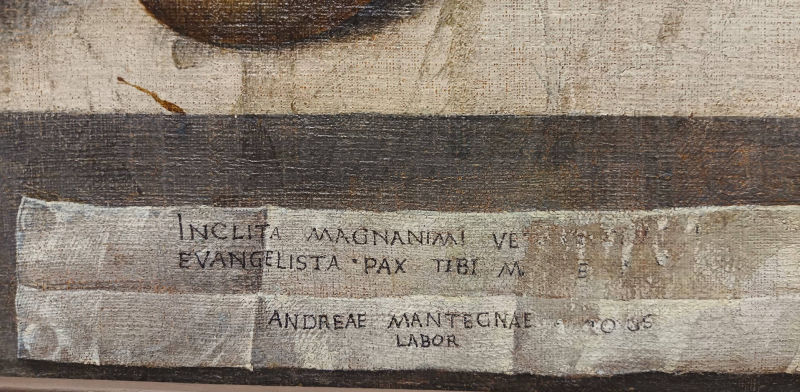 INCLITA MAGNANIMI VE
EVANGELISTA · PAX TIBI M
ANDREAE MANTEGNAE
LABOR